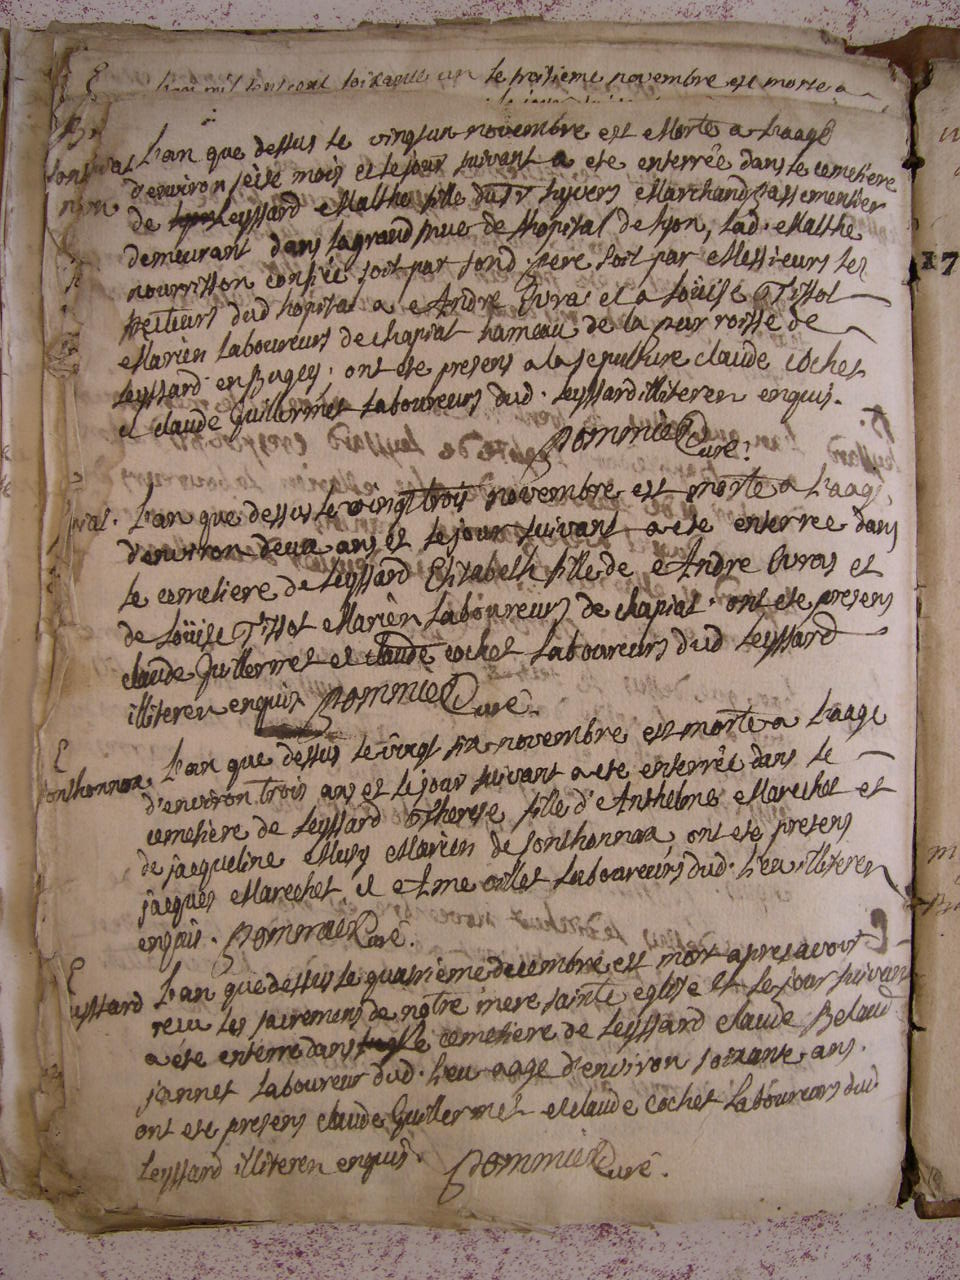 le troisieme novembre est morte a
L'an que dessus le vingtun novembre est Morte a L'aage
d'environ seise mois et le jour suivant a ete enterrée dans le cemetiere
de Leyssard Malthe fille du Sr hyvers Marchand Passementier
demeurant dans la grand rue de l'hopital de Lyon, Lad. Malthe
nourrisson confiée soit par sond. pere soit par Messieurs les
Recteurs dud hopital a Andre Evra et a Loüise Tissot
Mariën Laboureurs de chapiat hameau de la parroisse de
Leyssard en Bugey. ont ete presens a la sepulture claude cochet
et claude Guillermet Laboureurs dud. Leyssard illiteren enquis.
Pommier Curé.
piat. L'an que dessus le vingt trois novembre est morte a L'aage
d'environ deux ans et le jour suivant a ete enterree dans
le cemetiere de Leyssard Elisabeth fille de Andre Evras et
de Loüise Tissot Mariën Laboureurs de chapiat. ont ete presens
claude Guillermet et claude cochet Laboureurs dud Leyssard
illiteren enquis Pommier Curé.
E
Sonthonnax L'an que dessus le vingt six novembre est morte a L'aage
d'environ trois ans et le jour suivant a ete enterrée dans le
cemetière de Leyssard Therese fille d'Anthelme Marechet et
de jacqueline Musy Mariën de Sonthonnax, ont ete presens
jacques Marechet et Ame Laboureurs dud. Lieu illiteren
enquis. Pommier Curé.
E
Leyssard L'an que dessus le quatrième decembre est mort apres avoir
recu les sacremens de notre mere sainte eglise et le jour suivant
a éte enterre dans le cemetière de Leyssard claude Belaud
jannet Laboureur dud. Lieu aage d'environ soixante ans.
ont ete presens claude Guillermet et claude cochet Laboureurs dud.
Leyssard illiteren enquis. Pommier Curé.
17